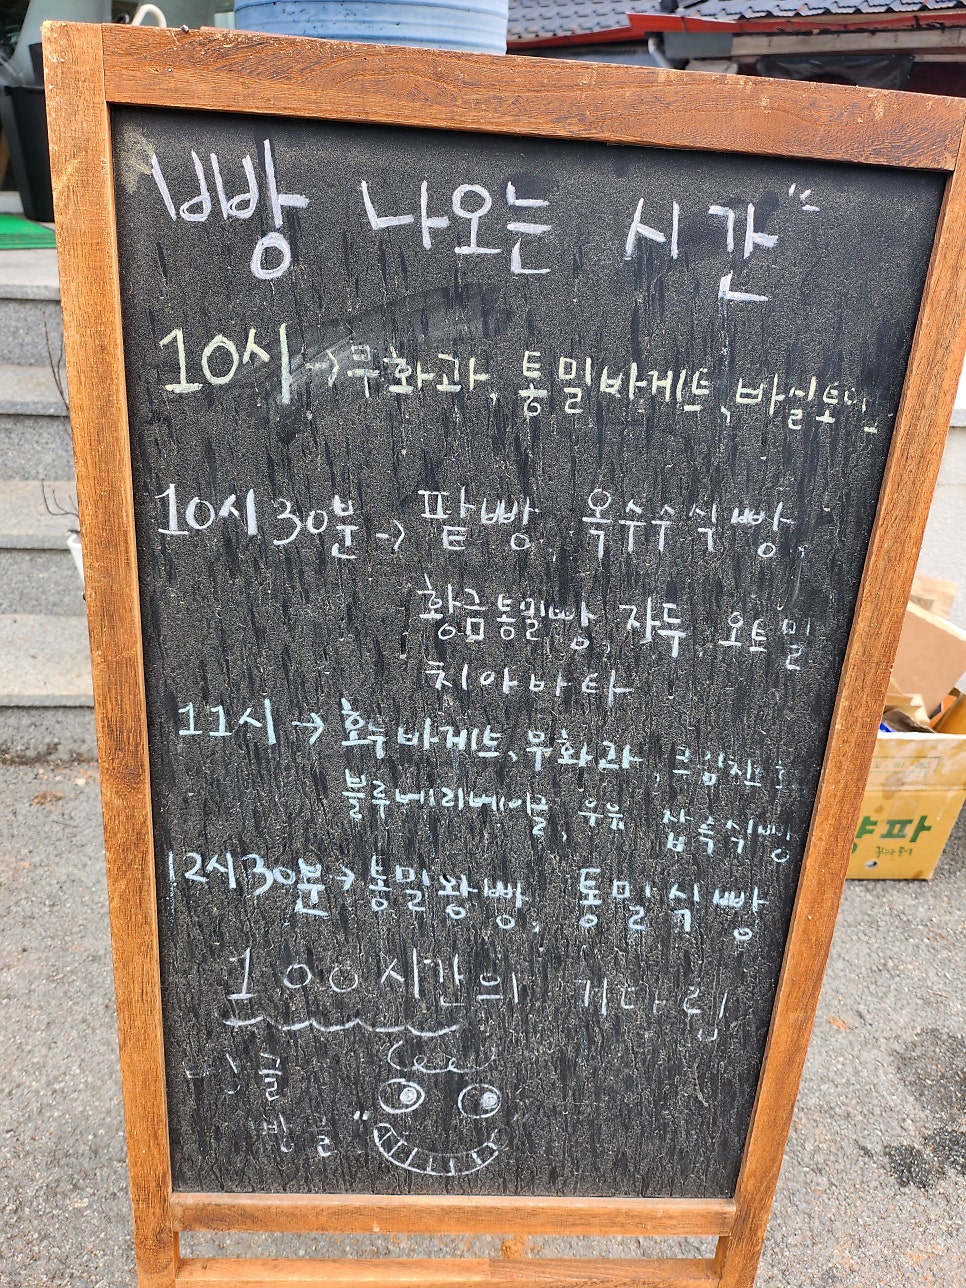 빵 나오는 시간"
10시 → 무화과, 통밀바게트, 바실토
10시 30분 → 팥빵, 옥수수식빵,
황금통밀빵, 자두, 오트밀
치아바타
11시 → 호두바게트, 무화과, 크림치즈
블루베리베이글, 우유 잡곡식빵
12시 30분 → 통밀왕빵, 통밀식빵
100시간의 기다림
싱글
벙글"
양파